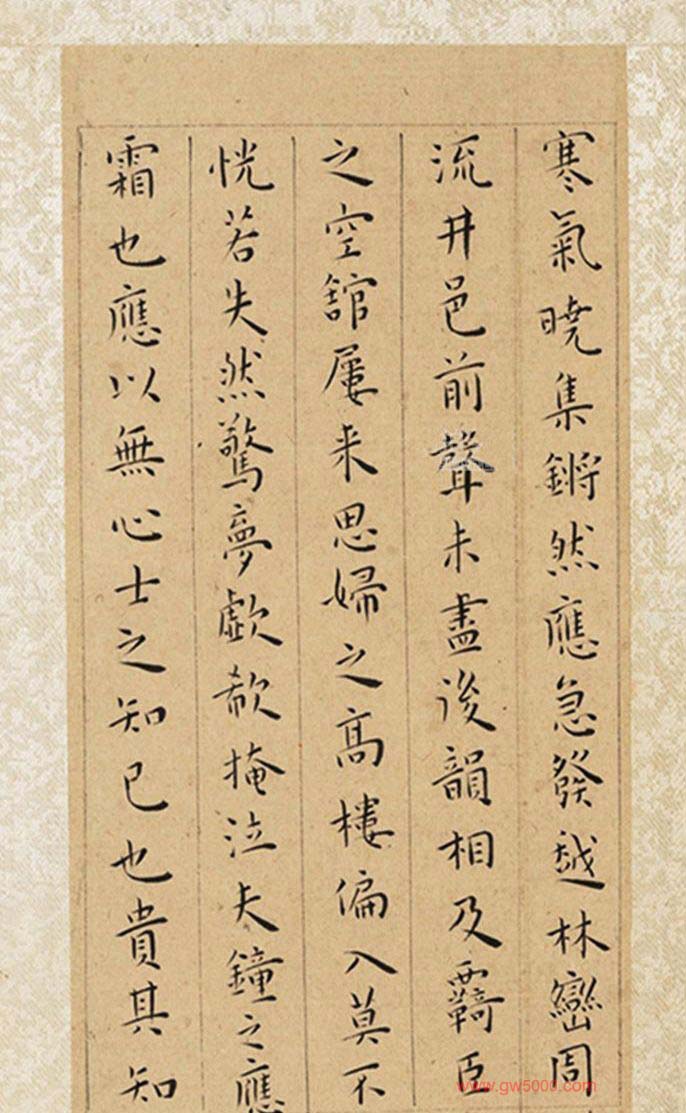 寒氣曉集鏘然應急發越林巒周
流井邑前聲未盡後韻相及覉臣
之空舘屢来思婦之高樓偏入莫不
恍若失然驚夢歔欷掩泣夫鐘之應
霜也應以無心士之知已也貴其知
www.gw5000.com